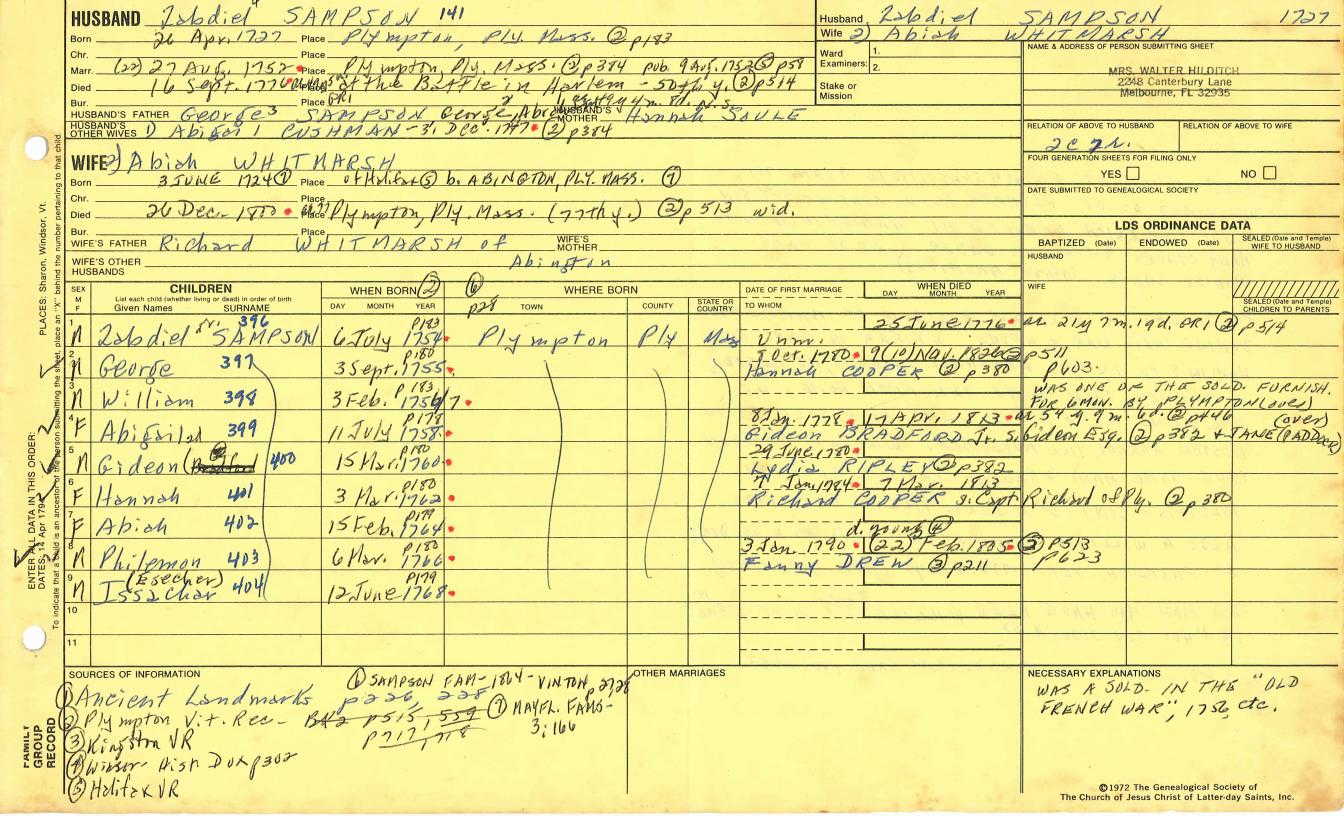 HUSBAND Zabdiel 4 SAMPSON 141
Born 26 Apr. 1727 Place Plympton, Ply. Mass. ② p183
Chr. Place
Marr. (22) 27 Aug. 1752 Place Plympton, Ply. Mass. ② p384 pub. 9 Aug. 1752 ⑤ p58
Died 16 Sept. 1776 at the Battle in Harlem - 50th y. ② p514
Bur. Place GR1
HUSBAND'S FATHER George 3 SAMPSON HUSBAND'S MOTHER Hannah SOULE
HUSBAND'S OTHER WIVES 1) Abigail CUSHMAN - 31 Dec. 1747 ② p384
Husband Zabdiel SAMPSON 1727
Wife 2) Abiah WHITMARSH
Ward Examiners: 1. 2.
Stake or Mission
NAME & ADDRESS OF PERSON SUBMITTING SHEET
MRS. WALTER HILDITCH
2248 Canterbury Lane
Melbourne, FL 32935
RELATION OF ABOVE TO HUSBAND RELATION OF ABOVE TO WIFE
FOUR GENERATION SHEETS FOR FILING ONLY
YES NO
DATE SUBMITTED TO GENEALOGICAL SOCIETY
WIFE 2) Abiah WHITMARSH
Born 3 JUNE 1724 ⑦ Place of Halifax ⑤ b. ABINGTON, PLY. MASS. ⑦
Chr. Place
Died 26 Dec. 1800 Place Plympton, Ply. Mass. (77th y.) ② p513 wid.
Bur. Place
WIFE'S FATHER Richard WHITMARSH of Abington WIFE'S MOTHER
WIFE'S OTHER HUSBANDS
LDS ORDINANCE DATA
BAPTIZED (Date) ENDOWED (Date) SEALED (Date and Temple) WIFE TO HUSBAND
HUSBAND
WIFE
SEALED (Date and Temple) CHILDREN TO PARENTS
SEX M F CHILDREN List each child (whether living or dead) in order of birth Given Names SURNAME
WHEN BORN ② DAY MONTH YEAR
⑥ p28 WHERE BORN TOWN COUNTY STATE OR COUNTRY
DATE OF FIRST MARRIAGE TO WHOM
WHEN DIED DAY MONTH YEAR
1 M Zabdiel SAMPSON 396 6 July 1754 p183 Plympton Ply Mass Unm. 25 June 1776 ae 21y 7m. 19d. GR1 ② p514
2 M George 397 3 Sept. 1755 p180 5 Oct. 1780 9(10) Nov. 1826 ② p511
Hannah COOPER ② p380 p603
3 M William 398 3 Feb. 1756/7 p183 WAS ONE OF THE SOLD. FURNISH. FOR 6 MON. BY PLYMPTON (over)
4 F Abigail 2d 399 11 July 1758 p178 8 Jan. 1778 17 APR. 1813 ae 54 y. 9 m. 6d. ② p446 (over)
Gideon BRADFORD Jr. S. Gideon Esq. ② p382 + JANE (PADDOCK)
5 M Gideon 400 15 Mar. 1760 p180 29 June 1780
Lydia RIPLEY ② p382
6 F Hannah 401 3 Mar. 1762 p180 7 Jan. 1784 7 Mar. 1813
Richard COOPER s. Capt Richard of Ply. ② p380
7 F Abiah 402 15 Feb. 1764 p179 d. young ④
8 M Philemon 403 6 Mar. 1766 p180 3 Jan. 1790 (22) Feb. 1805 ② p513
Fanny DREW ③ p211 p623
9 M (Esecher) Issachar 404 12 June 1768 p179
10
11
SOURCES OF INFORMATION
① Ancient Landmarks p226, 228
② Plympton Vit. Rec. - B42 p515, 559
p717, 718
③ Kingston VR
④ Winsor Hist. Dux p302
⑤ Halifax VR
⑥ SAMPSON FAM - 1864 - VINTON p27,28
⑦ MAYFL. FAMS - 3:166
OTHER MARRIAGES
NECESSARY EXPLANATIONS
WAS A SOLD. IN THE "OLD
FRENCH WAR", 1756, etc.
©1972 The Genealogical Society of
The Church of Jesus Christ of Latter-day Saints, Inc.
PLACES: Sharon, Windsor, Vt.
ENTER ALL DATA IN THIS ORDER:
DATES: 14 Apr 1794
FAMILY GROUP RECORD